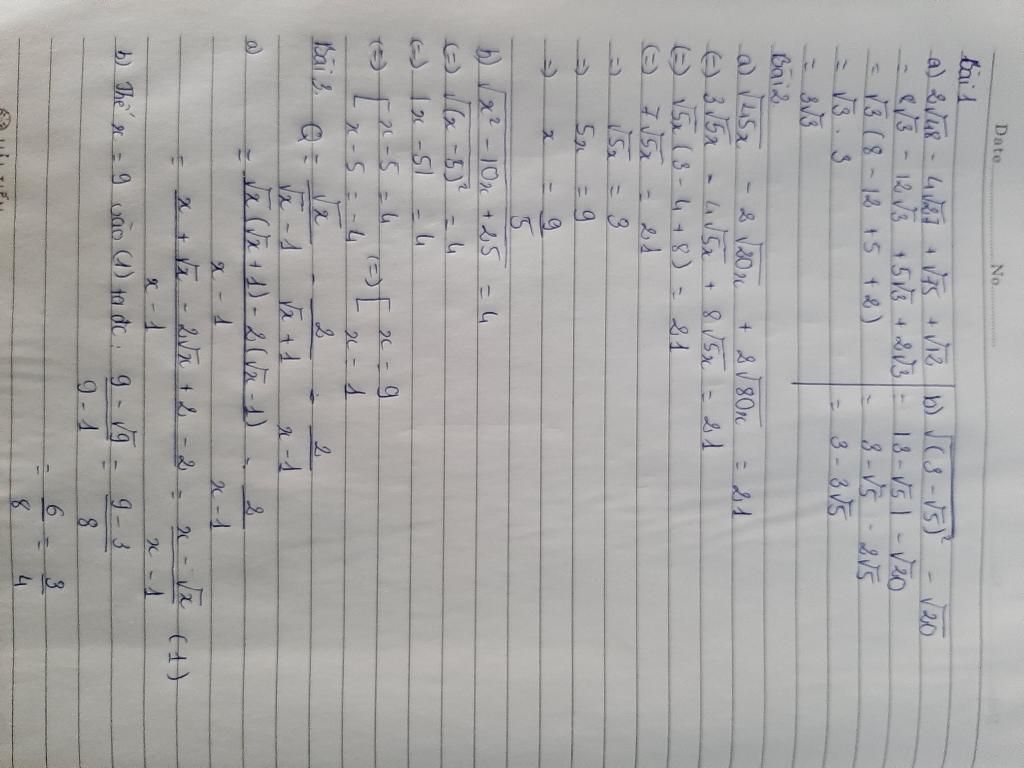 Date............ No............
Bài 1
a) 2√48 - 4√27 + √75 + √12
= 8√3 - 12√3 + 5√3 + 2√3
= √3 (8 - 12 + 5 + 2)
= √3 . 3
= 3√3
b) √(3 - √5)² - √20
= |3 - √5| - √20
= 3 - √5 - 2√5
= 3 - 3√5
Bài 2.
a) √45x - 2√20x + 2√80x = 21
(=) 3√5x - 4√5x + 8√5x = 21
(=) √5x (3 - 4 + 8) = 21
(=) 7√5x = 21
=) √5x = 3
=) 5x = 9
=) x = 9/5
b) √x² - 10x + 25 = 4
(=) √(x - 5)² = 4
(=) |x - 5| = 4
(=) [ x - 5 = 4 (=) [ x = 9
x - 5 = -4 x = 1
Bài 3. Q = √x/(√x - 1) - 2/(√x + 1) - 2/(x - 1)
a) = (√x(√x + 1) - 2(√x - 1))/(x - 1) - 2/(x - 1)
= (x + √x - 2√x + 2 - 2)/(x - 1) = (x - √x)/(x - 1) (1)
b) Thế x = 9 vào (1) ta đc: (9 - √9)/(9 - 1) = (9 - 3)/8
= 6/8 = 3/4